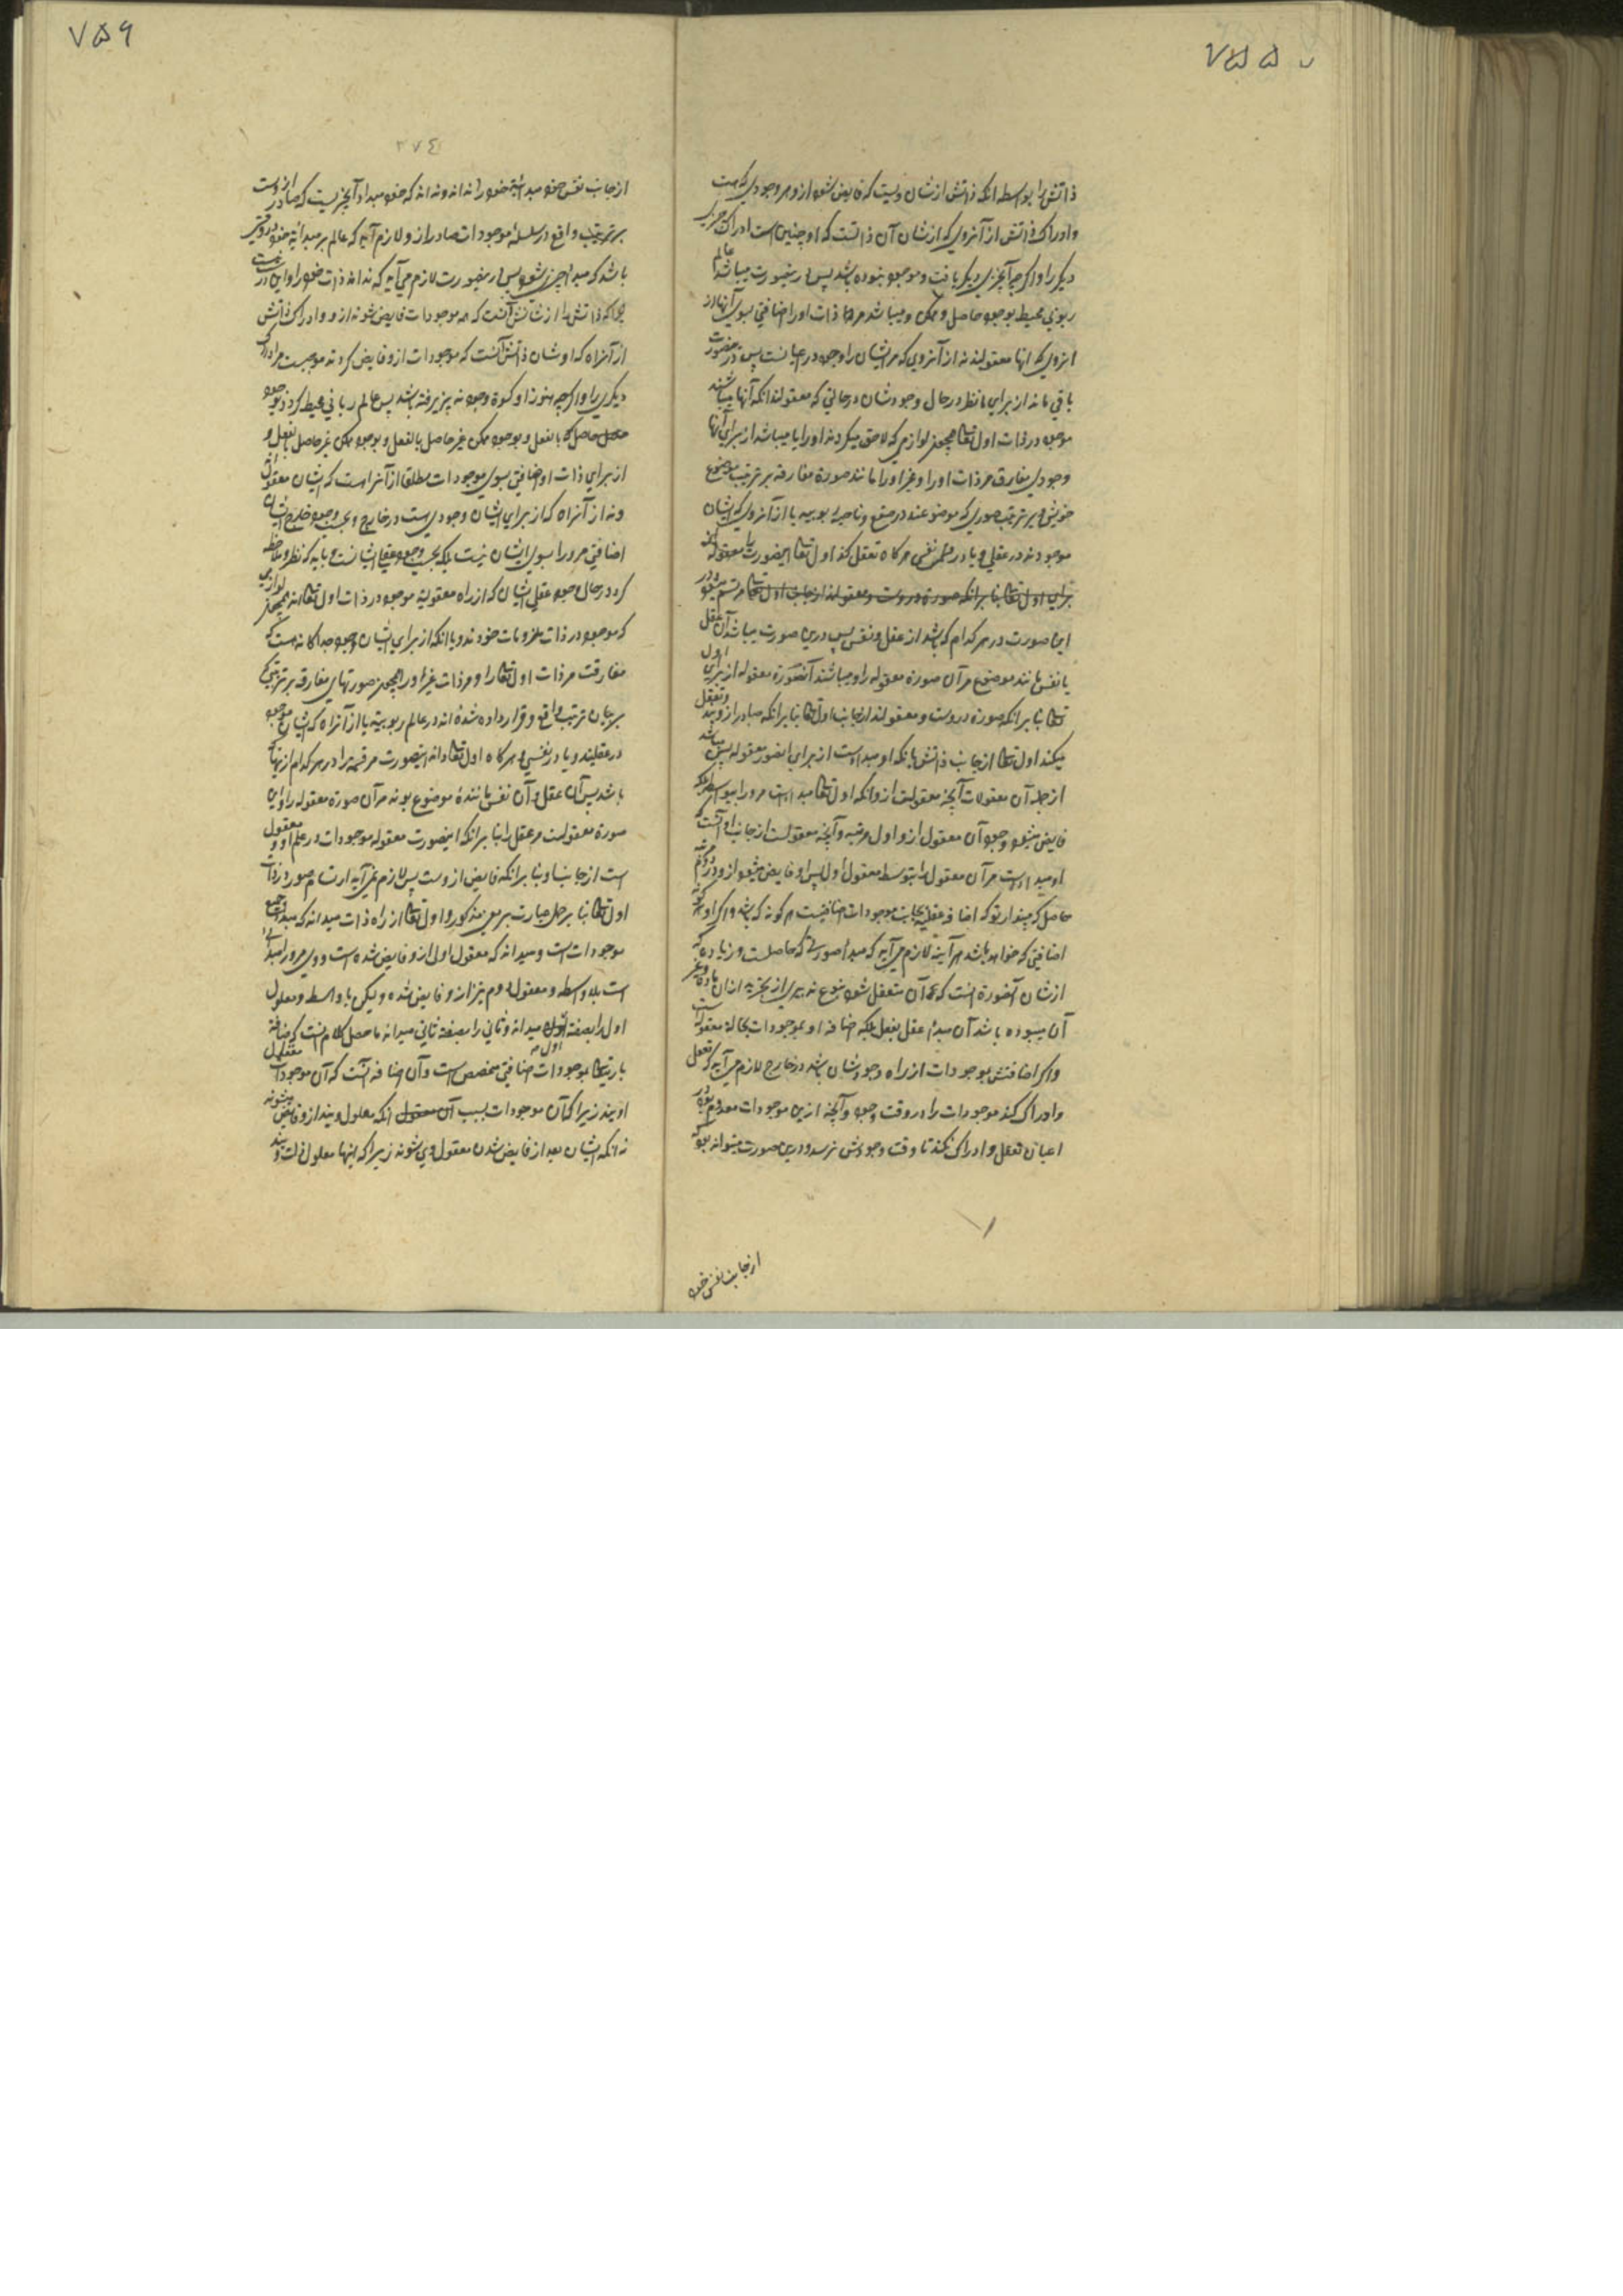 ۷۵۵
ذاتش را بواسطه انکه ذاتش از شان ویست که فایض شود ازو هر وجودی که هست
وادراک ذاتش از آنروی که از شان آن ذاتست که او چنین است ادراک چیزی
دیکر را واکرچه آنچیزی دیکر یافت وموجود نبوده باشد پس درینصورت میباشد عالم
ربوبی محیط بوجود حاصل وممکن ومیباشد مر ذات اورا اضافتی بسوی آنها از
انروی که انها معقولند نه از آنروی که مر ایشان را وجود در اعیانست پس درینصورت
باقی ماند از برای ما نظر در حال وجود شان در حالتی که معقولند انکه آنها میباشند
موجود در ذات اول تعالی همچو لوازمی که لاحق میکردند اورا یا میباشد از برای آنها
وجودی مفارق مر ذات اورا وغیر اورا مانند صورة مفارقه بر ترتیب موضوع
خویش وبر ترتیب صوری که موضوعند در صقع وناحیه ربوبیه یا از آنروی که ایشان
موجودند در عقلی ویا در نفسی هرکاه تعقل کند اول تعالی اینصورت را
برای اول تعالی بنابر انکه صورة دروست ومعقولند از جانب اول تعالی مرتسم میشود
این صورت در هر کدام که باشد از عقل ونفس پس درین صورت میباشد آن عقل
یا نفس مانند موضوع مر آن صورة معقوله را ومیباشند آنصورة معقوله از برای اول
تعالی بنابر انکه صورة دروست ومعقولند از جانب اول تعالی بنابر انکه صادر ازویند وتعقل
میکند اول تعالی از جانب ذاتش بانکه او مبداست از برای انصور معقوله پس میباشد
از جمله آن معقولات آنچه معقولیت ازو انکه اول تعالی مبداست مر ورا بیواسطه بلکه
فایض میشود وجود آن معقول ازو اول مرتبه وآنچه معقولست از جانب او آنست که
او مبداست مر آن معقول را بتوسط معقول اول پس او فایض میشود ازو در دوم مرتبه
حاصل که مپندار تو که اضافه عقلیه بجانب موجودات اضافتیست هر کونه که باشد واکر او هر کونه
اضافتی که خواهد باشد هر آینه لازم می آید که مبدا صورتی که حاصلست در ماده که
از شان آنصورة انست که آن متعقل شود بنوع تدبیری از تجرید از ان ماده وغیر
آن میبوده باشد آن مبدا عقل بفعل بلکه اضافه او بموجودات بحالة معقوله است
واکر اضافتش بموجودات از راه وجود شان باشد در خارج لازم می آید که تعقل
وادراک کند موجودات را در وقت وجود وآنچه ازین موجودات معدوم بود در
اعیان تعقل وادراک نکند تا وقت وجودش نرسد ودرین صورت میتواند بود که
از جانب نفس خود
۷۵۶
۳۷٤
از جانب نفس خود مبدائیة خود را نداند ونداند که خود مبدا آنچیزیست که صادر ازوست
بر ترتیب واقع در سلسلهٔ موجودات صادر ازو لازم آید که عالم بر مبدائیة خود در وقتی
باشد که مبدا چیزی شود پس درینصورت لازم می آید که نداند ذات خود را واین درست نیست
چرا که ذاتش را از شانش آنست که همه موجودات فایض شوند ازو وادراک ذاتش
از آنراه که او شان ذاتش آنست که موجودات ازو فایض کردند موجبست مر ادراک
دیکری را واکرچه هنوز او کسوة وجود نپزیرفته باشد پس عالم ربانی محیط کردد بوجود
حاصل بالفعل وبوجود ممکن غیر حاصل بالفعل
از برای ذات او اضافتی بسوی موجودات مطلقا از آنراست که ایشان معقول
ونه از آنراه که از برای ایشان وجودی ست در خارج وبحسب وجود خارج ایشان
اضافتی مر ورا بسوی ایشان نیست بلکه بحسب وجود عقلی ایشانست وباید که نظر وملاحظه
کرد در حال وجود عقلی ایشان که از راه معقولیة موجود در ذات اول تعالی اند همچو لوازمی
که موجود در ذات ملزومات خودند ویا انکه از برای ایشان وجود جداکانه است که
مفارقت مر ذات اول تعالی را ومر ذات غیر اورا همچو صورتهای مفارقه بر ترتیبی که
بر همان ترتیب واقع وقرار داده شده اند در عالم ربوبیة یا از آنراه که ایشان موجود
در عقلیند ویا در نفسی وهرکاه اول تعالی داند اینصورت مرقمه را در هر کدام از اینها که
باشد پس آن عقل وآن نفس مانندهٔ موضوع بوند مر آن صورة معقوله را واین
صورة معقولست مر عقل را بنابر انکه اینصورت معقوله موجودات در علم او ومعقول
است از جانب او بنابر انکه فایض ازوست پس لازم نمی آید ارتسام صور در ذات
اول تعالی بنابر حمل عبارت بر معنی مذکور واول تعالی از راه ذات میداند که مبدا جمیع
موجودات است ومیداند که معقول اول ازو فایض شده است ووی مر ورا مبدائی
است بلا واسطه ومعقول دوم نیز ازو فایض شده ولیکن با واسطه ومعلول
اول را بصفة اول میداند وثانی را بصفة ثانی میداند ما حصل کلام انست که اضافه
باریتعالی بموجودات اضافتی مخصص است وآن اضافه آنست که آن موجودات معقول
اویند زیرا که آن موجودات بسبب آن انکه معلول ویند ازو فایض میشوند
نه انکه ایشان بعد از فایض شدن معقول وی شوند زیرا که اینها معلول ذات ویند